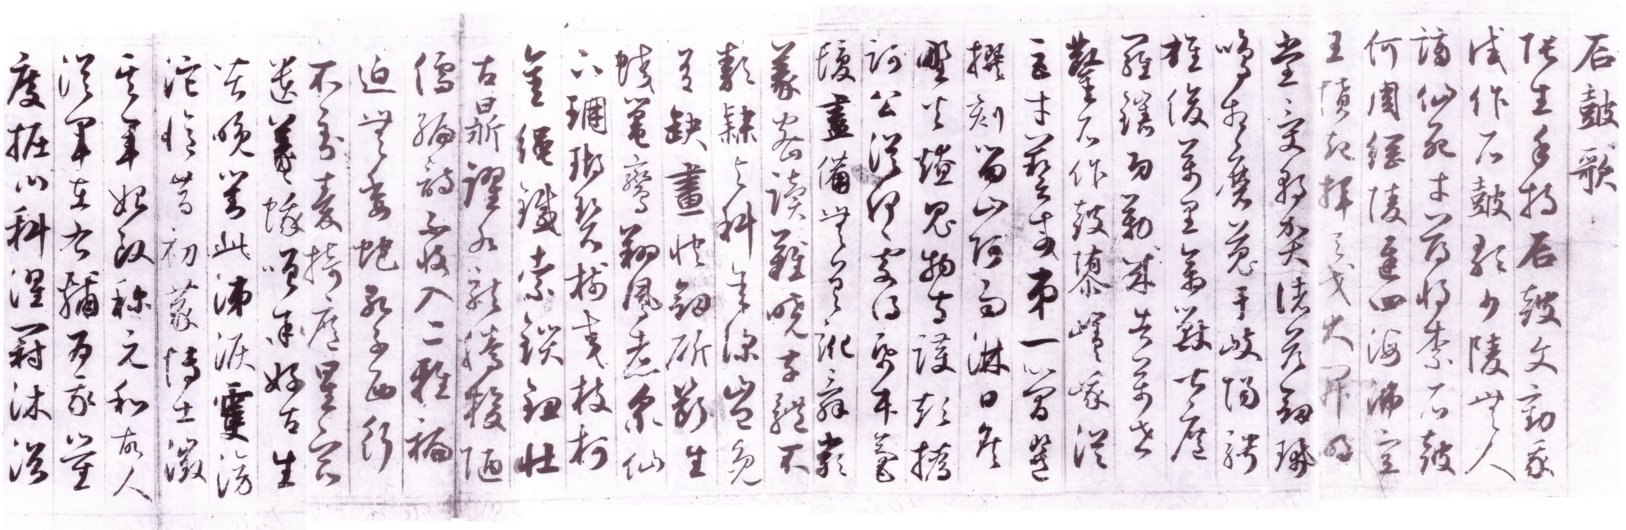 石鼓歌
張生手持石鼓文勸我
試作石鼓歌少陵無人
謫仙死才薄將奈石鼓
何周綱陵遲四海沸宣
王憤起揮天戈大開明
堂受朝賀諸侯劍珮
鳴相磨蒐于岐陽騁
雄俊萬里禽獸皆遮
羅鐫功勒成告萬世
鑿石作鼓隳嵯峨從
臣才藝咸第一揀選
撰刻留山阿雨淋日炙
野火燎鬼物守護煩撝
訶公從何處得紙本毫
髮盡備無差訛辭嚴
義密讀難曉字體不
類隸與科年深豈免
有缺畫快劍斫斷生
蛟鼉鸞翔鳳翥衆仙
下珊瑚碧樹交枝柯
金繩鐵索鎖鈕壯
古鼎躍水龍騰梭陋
儒編詩不收入二雅褊
迫無委蛇孔子西行
不到秦掎摭星宿
遺羲娥嗟余好古生
苦晚對此涕淚雙滂
沱憶昔初蒙博士徵
其年始改稱元和故人
從軍在右輔爲我量
度掘臼科濯冠沐浴